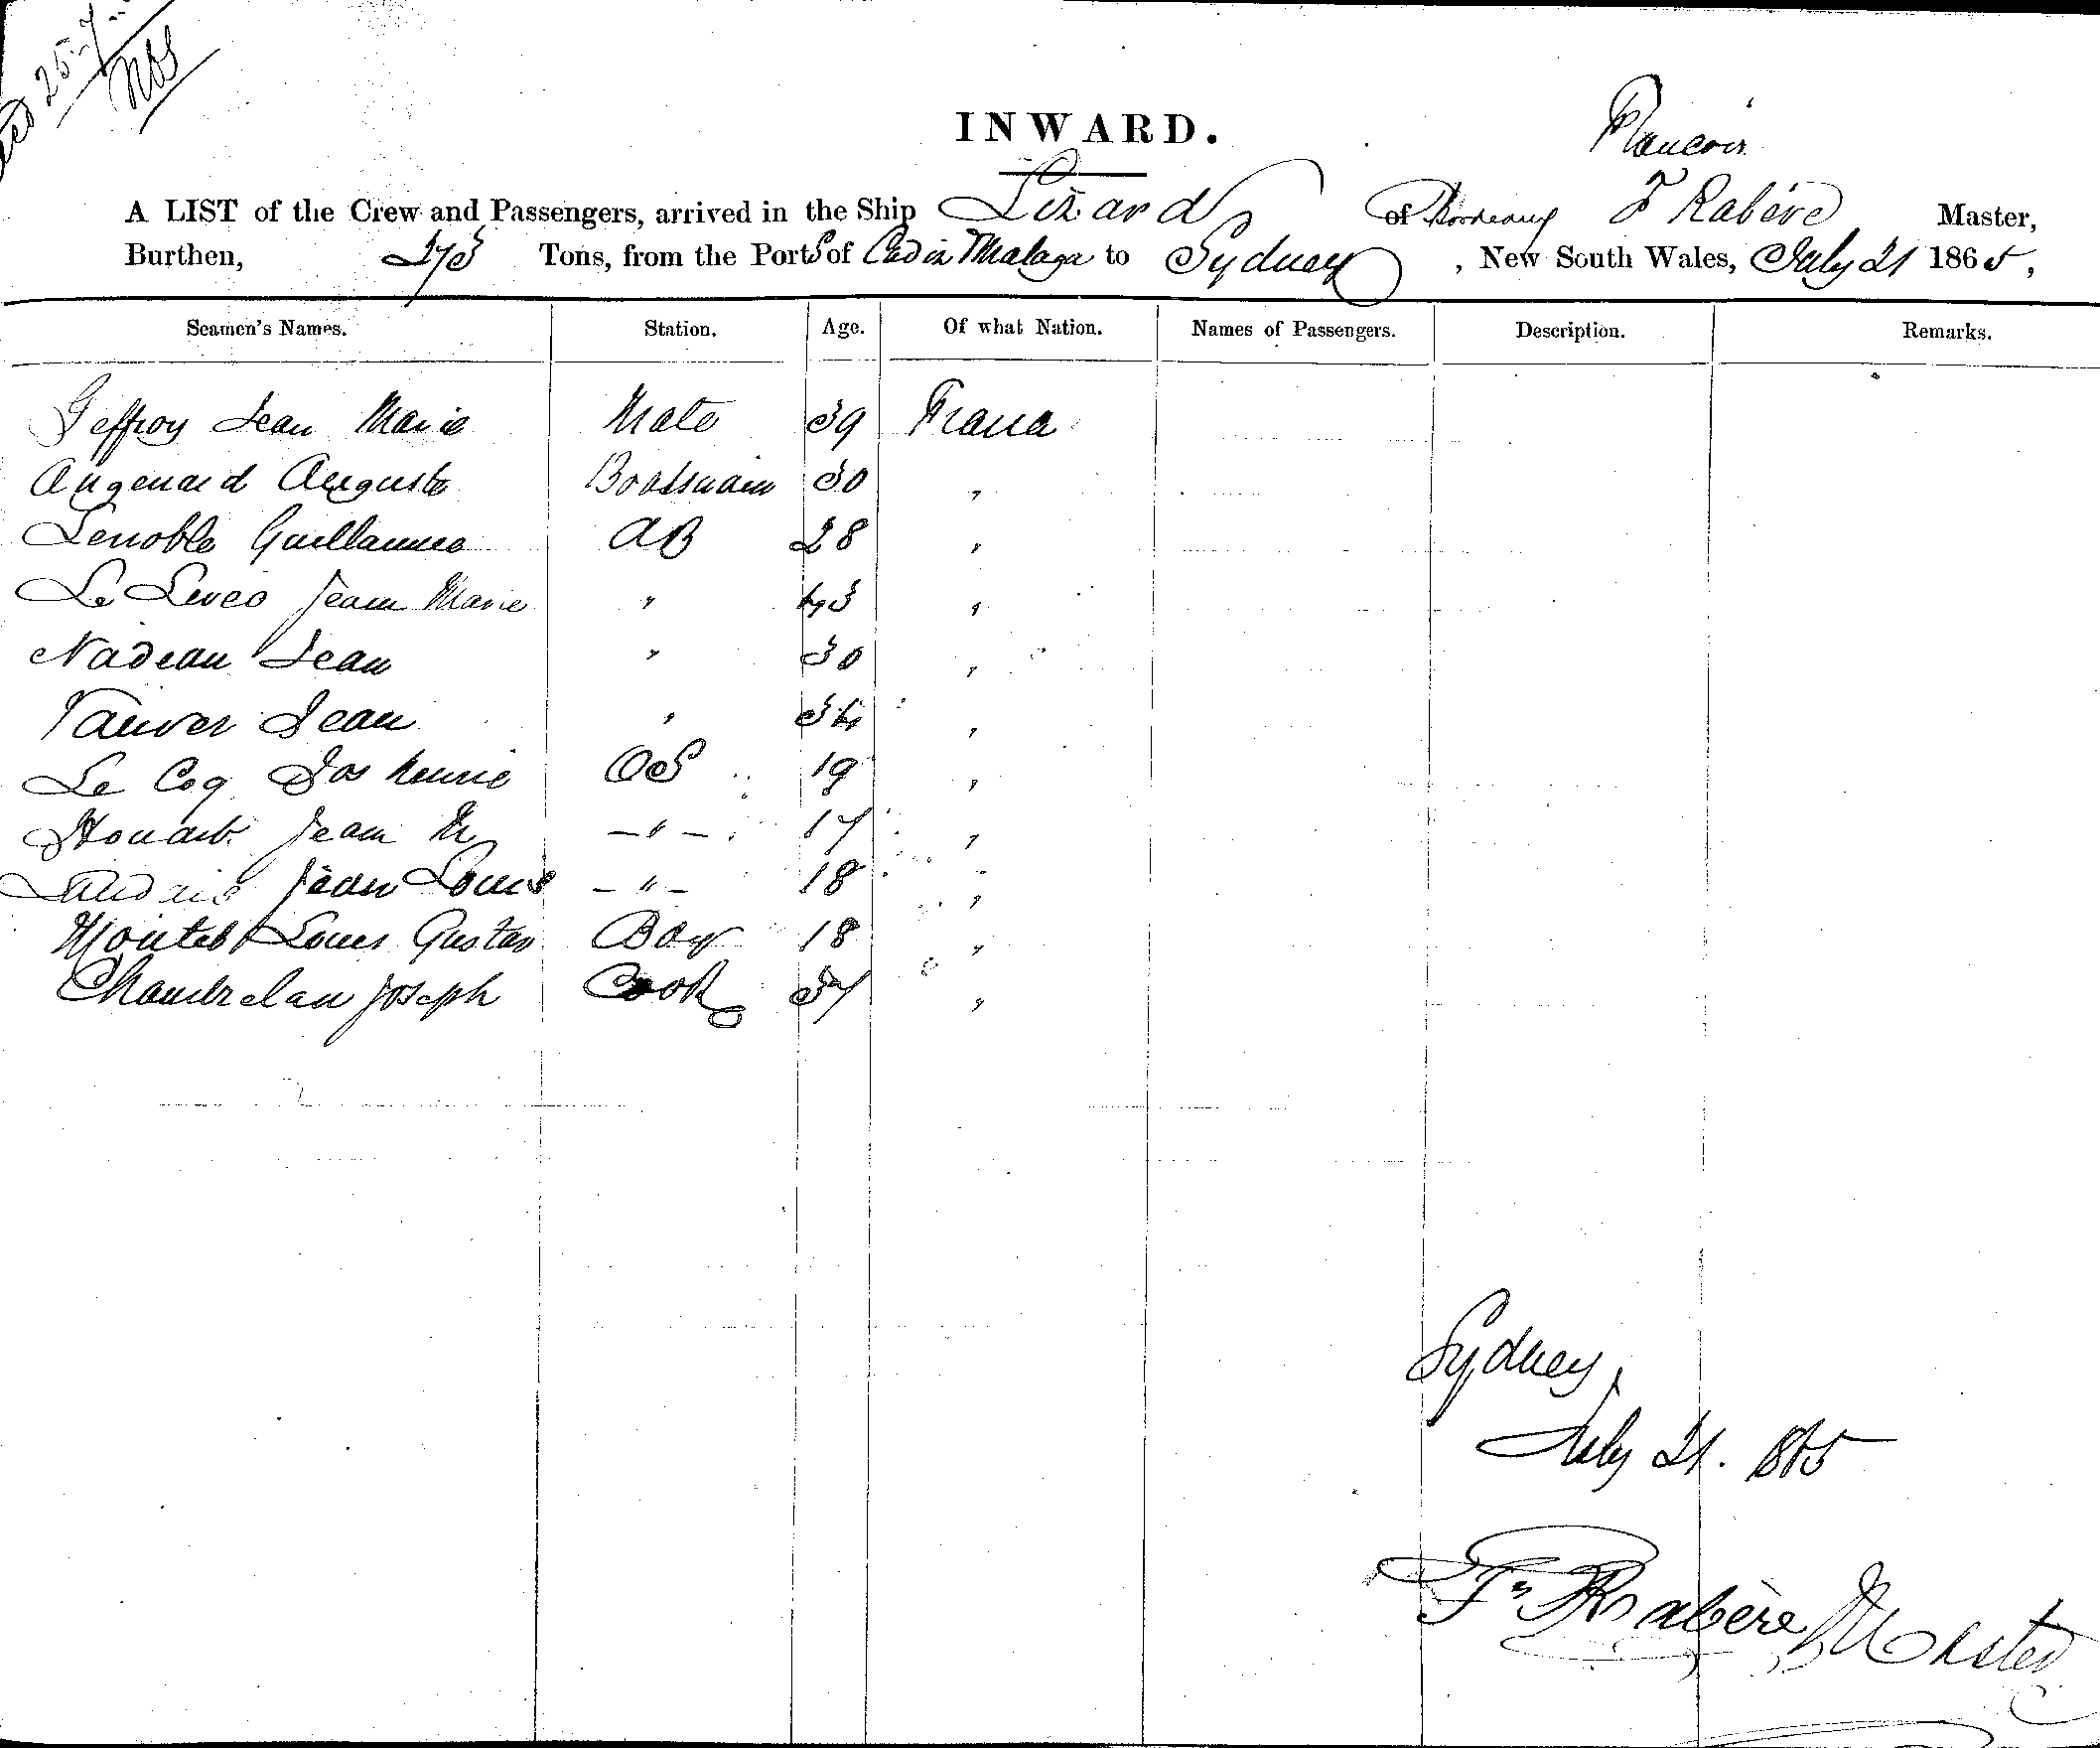 25-7
INWARD.
Francois
A LIST of the Crew and Passengers, arrived in the Ship Lizard of Bordeaux F Rabère Master,
Burthen, 273 Tons, from the Ports of Cadiz Malaga to Sydney, New South Wales, July 21 1865,
Seamen's Names. Station. Age. Of what Nation. Names of Passengers. Description. Remarks.
Jeffroy Jean Marie Mate 39 France
Angenard Auguste Boatswain 30 "
Lenoble Guillaume AB 28 "
Le Leveo Jean Marie " 43 "
Nadeau Jean " 30 "
Tanver Jean " 34 "
Le Coq Jos OS 19 "
Houart Jean M — " — 17 "
Jean Louis — " — 18 "
Montet Louis Gustav Boy 18 "
Joseph Cook 37 "
Sydney,
July 21. 1865
Fs Rabère Master